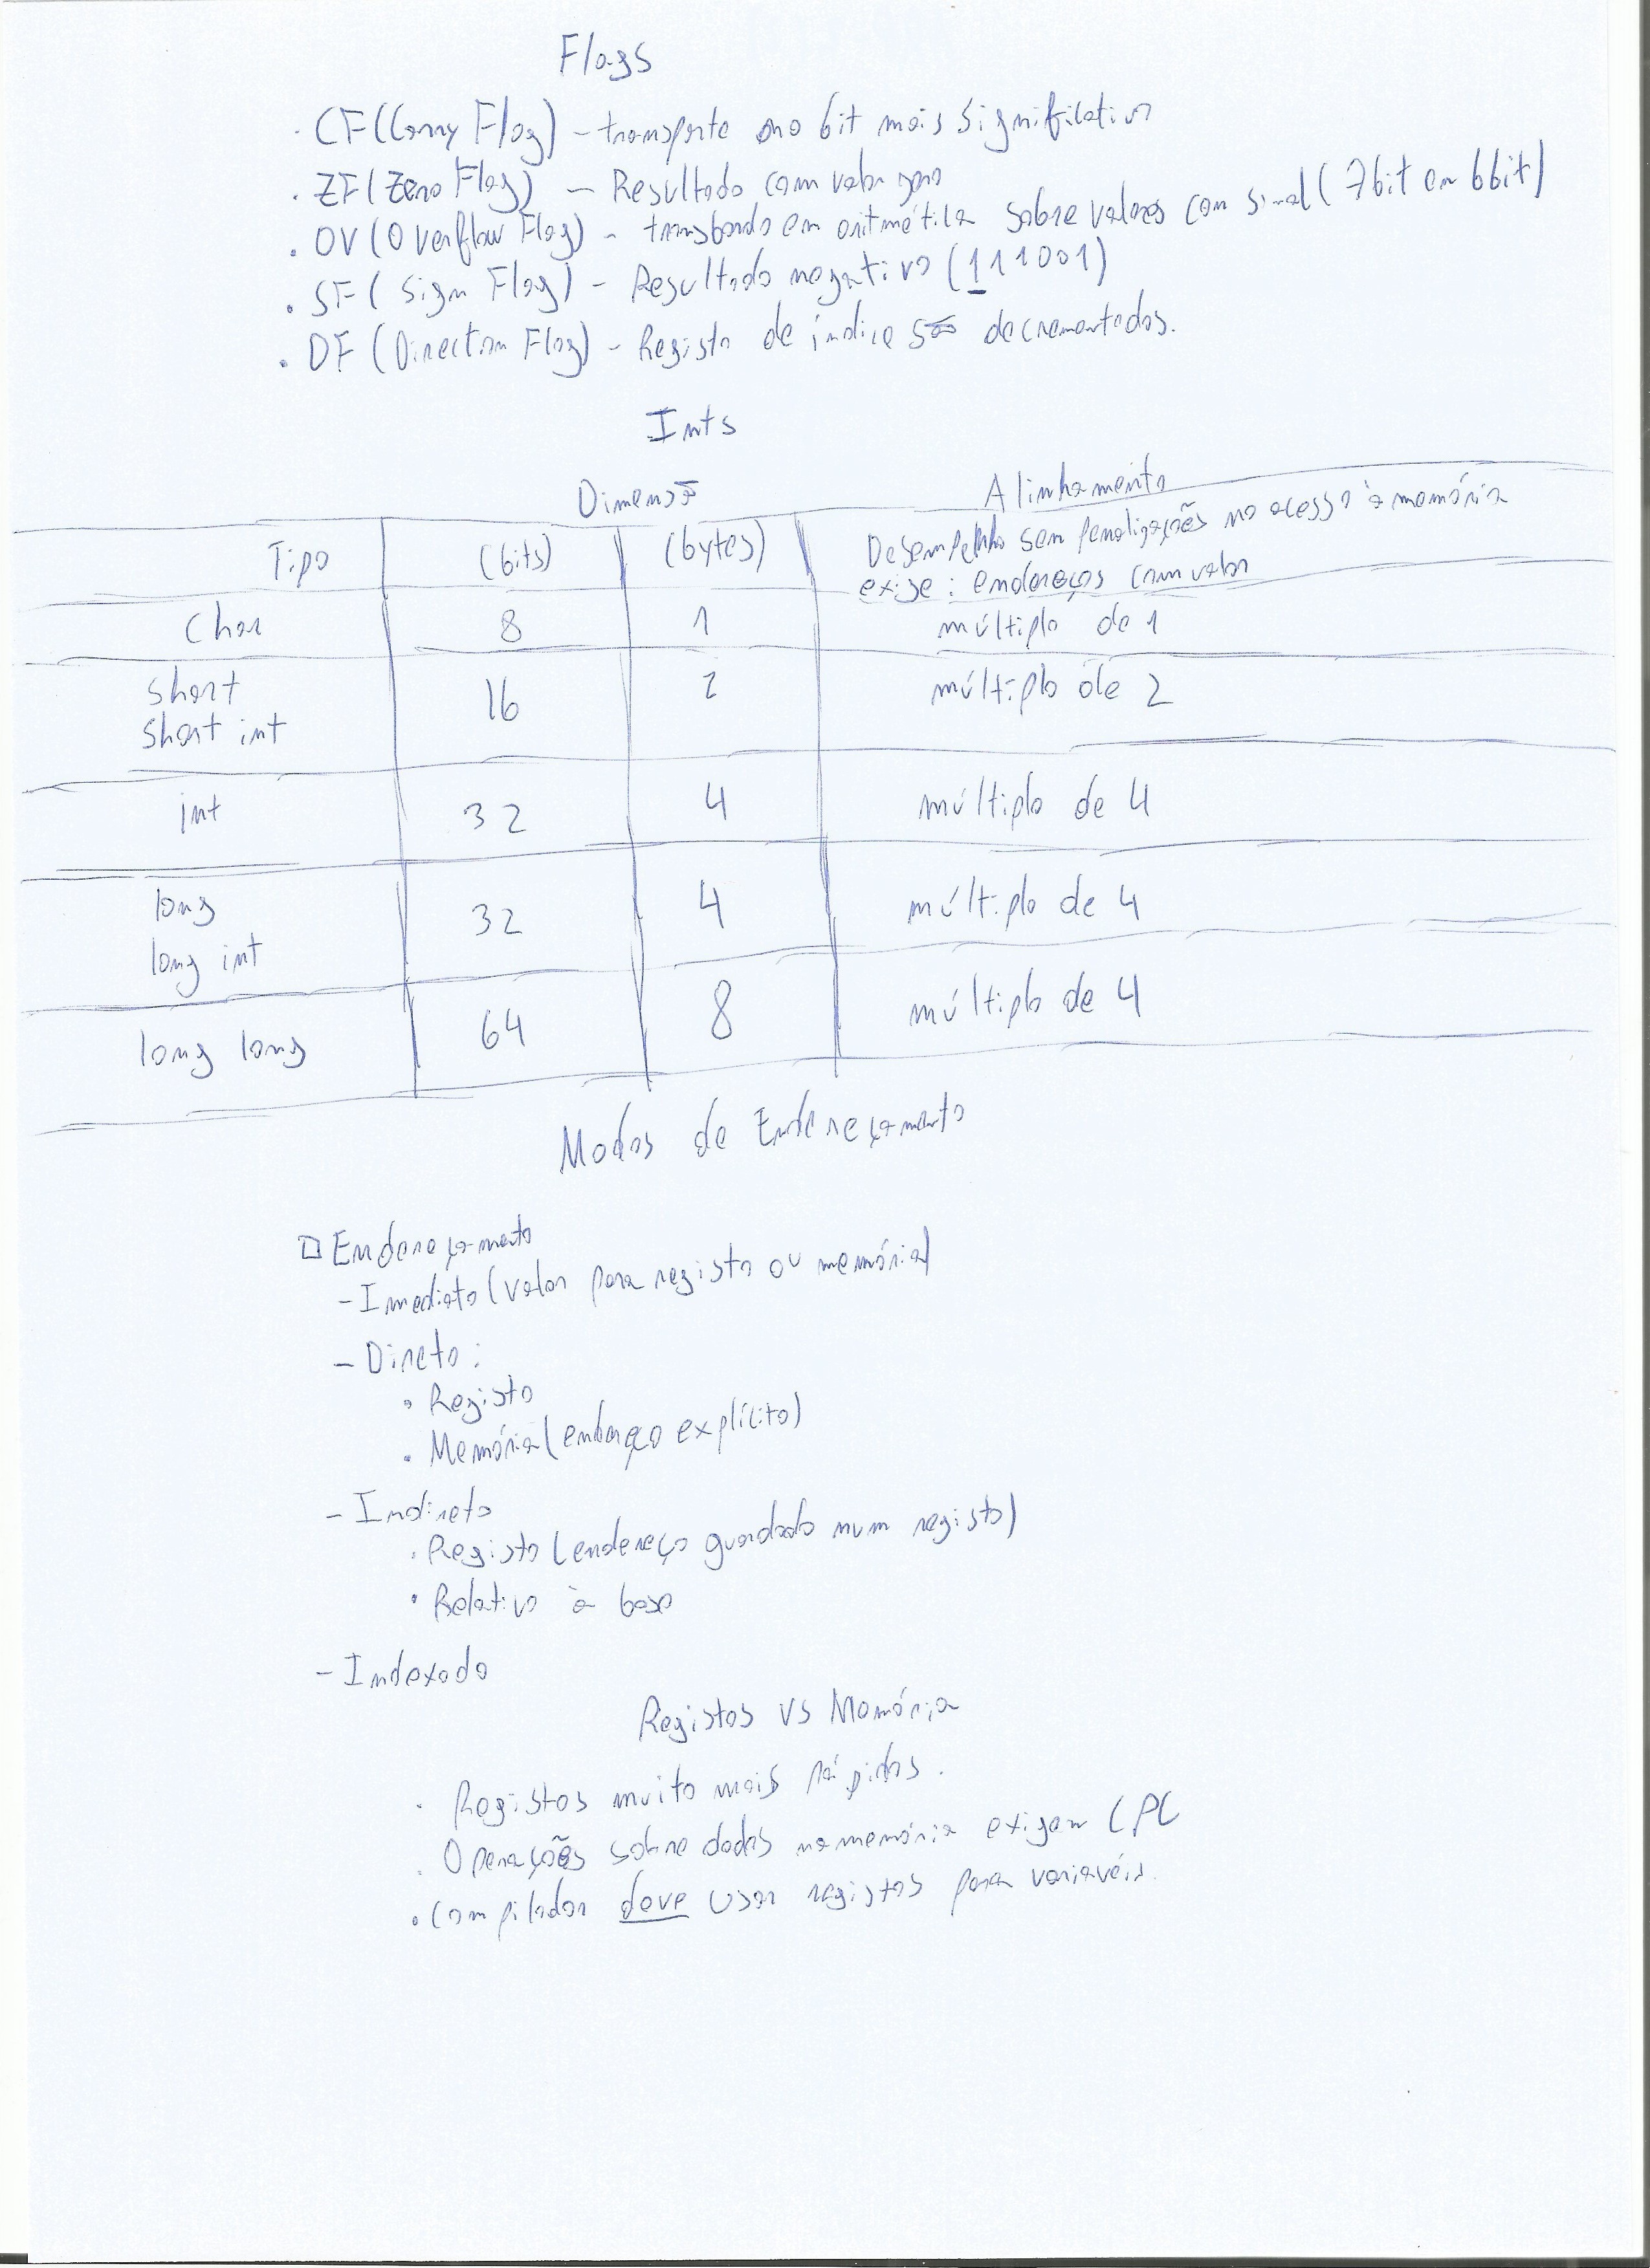 Flags
· CF (Carry Flag) - transporte no bit mais significativo
· ZF (Zero Flag) - Resultado com valor zero
· OV (Overflow Flag) - transbordo em aritmética sobre valores com sinal (7bit em 6bit)
· SF (Sign Flag) - Resultado negativo (111001)
· DF (Direction Flag) - Registo de índice são decrementados.
Ints
Dimensão Alinhamento
Tipo (bits) (bytes) Desempenho sem penalizações no acesso à memória
exige: endereços com valor
Char 8 1 múltiplo de 1
short
short int 16 2 múltiplo de 2
int 32 4 múltiplo de 4
long
long int 32 4 múltiplo de 4
long long 64 8 múltiplo de 4
Modos de Endereçamento
□ Endereçamento
- Imediato (valor para registo ou memória)
- Direto:
· Registo
· Memória (endereço explícito)
- Indireto
· Registo (endereço guardado num registo)
· Relativo à base
- Indexado
Registos vs Memória
· Registos muito mais rápidos.
· Operações sobre dados na memória exigem CPU
· Compilador deve usar registos para variavéis.